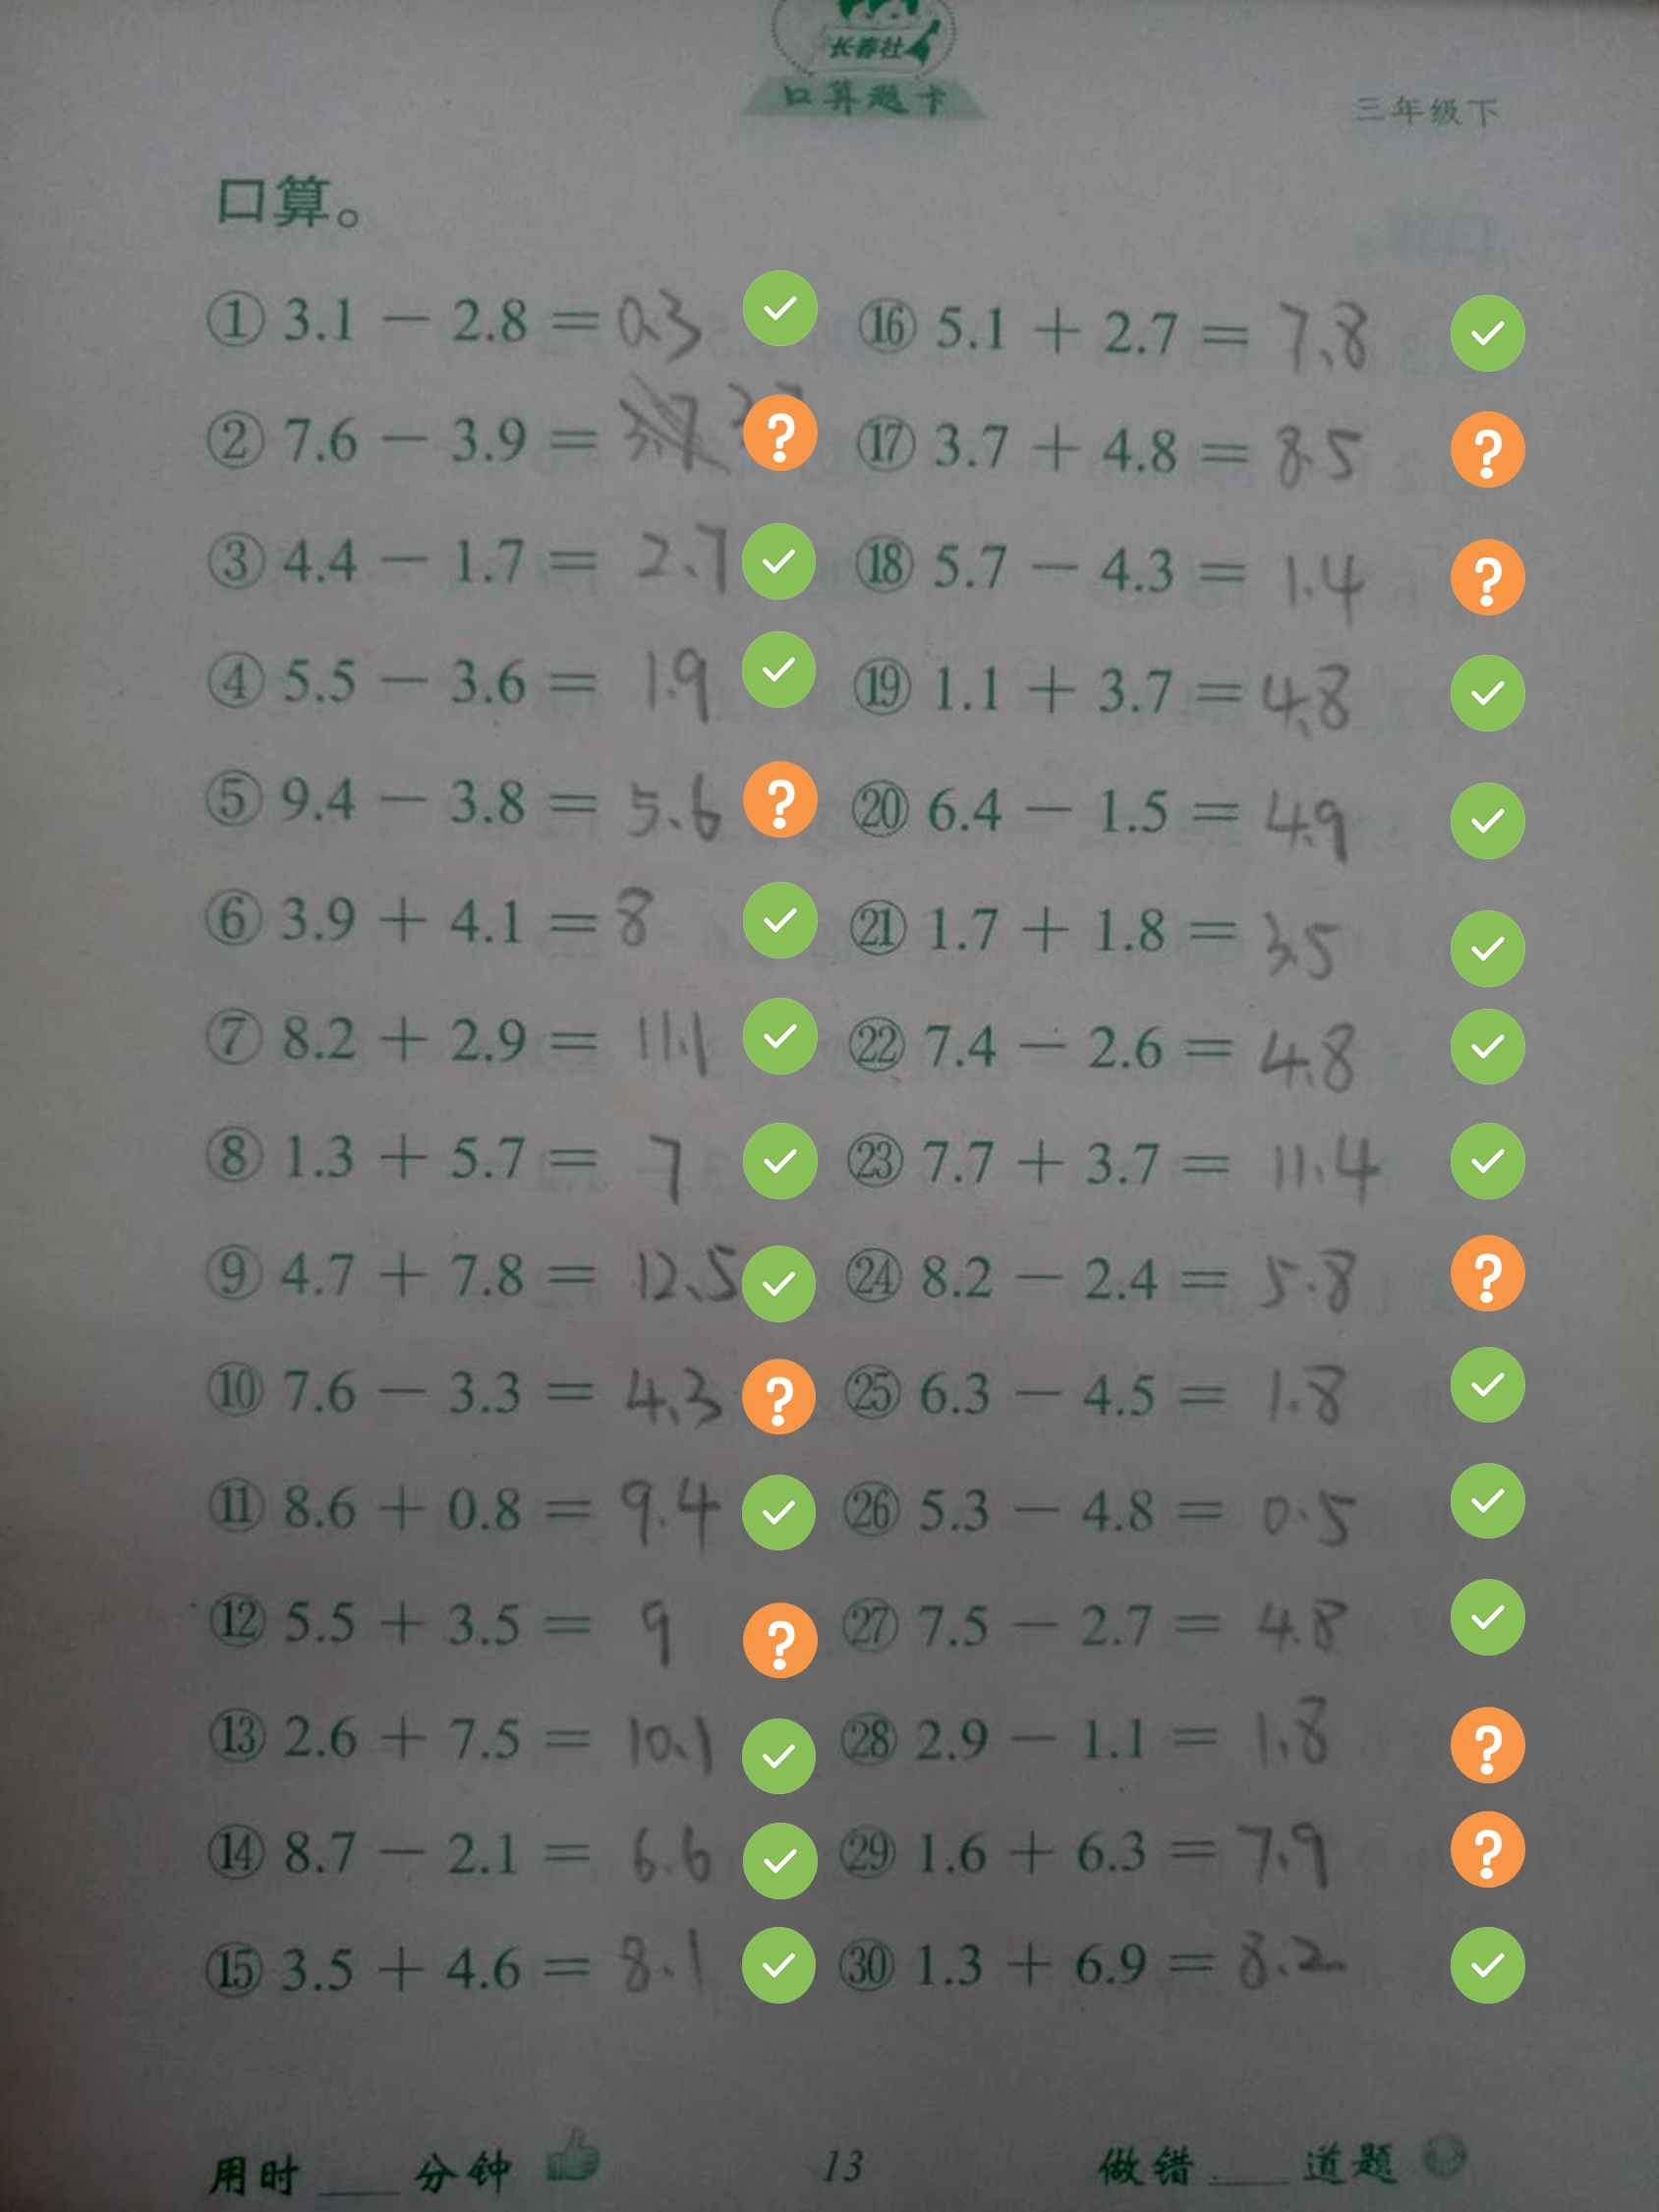 长春社
口算题卡
三年级下
口算。
① 3.1 − 2.8 = 0.3
② 7.6 − 3.9 =
③ 4.4 − 1.7 = 2.7
④ 5.5 − 3.6 = 1.9
⑤ 9.4 − 3.8 = 5.6
⑥ 3.9 + 4.1 = 8
⑦ 8.2 + 2.9 = 11.1
⑧ 1.3 + 5.7 = 7
⑨ 4.7 + 7.8 = 12.5
⑩ 7.6 − 3.3 = 4.3
⑪ 8.6 + 0.8 = 9.4
⑫ 5.5 + 3.5 = 9
⑬ 2.6 + 7.5 = 10.1
⑭ 8.7 − 2.1 = 6.6
⑮ 3.5 + 4.6 = 8.1
⑯ 5.1 + 2.7 = 7.8
⑰ 3.7 + 4.8 = 8.5
⑱ 5.7 − 4.3 = 1.4
⑲ 1.1 + 3.7 = 4.8
⑳ 6.4 − 1.5 = 4.9
㉑ 1.7 + 1.8 = 3.5
㉒ 7.4 − 2.6 = 4.8
㉓ 7.7 + 3.7 = 11.4
㉔ 8.2 − 2.4 = 5.8
㉕ 6.3 − 4.5 = 1.8
㉖ 5.3 − 4.8 = 0.5
㉗ 7.5 − 2.7 = 4.8
㉘ 2.9 − 1.1 = 1.8
㉙ 1.6 + 6.3 = 7.9
㉚ 1.3 + 6.9 = 8.2
用时 ___ 分钟
13
做错 ___ 道题